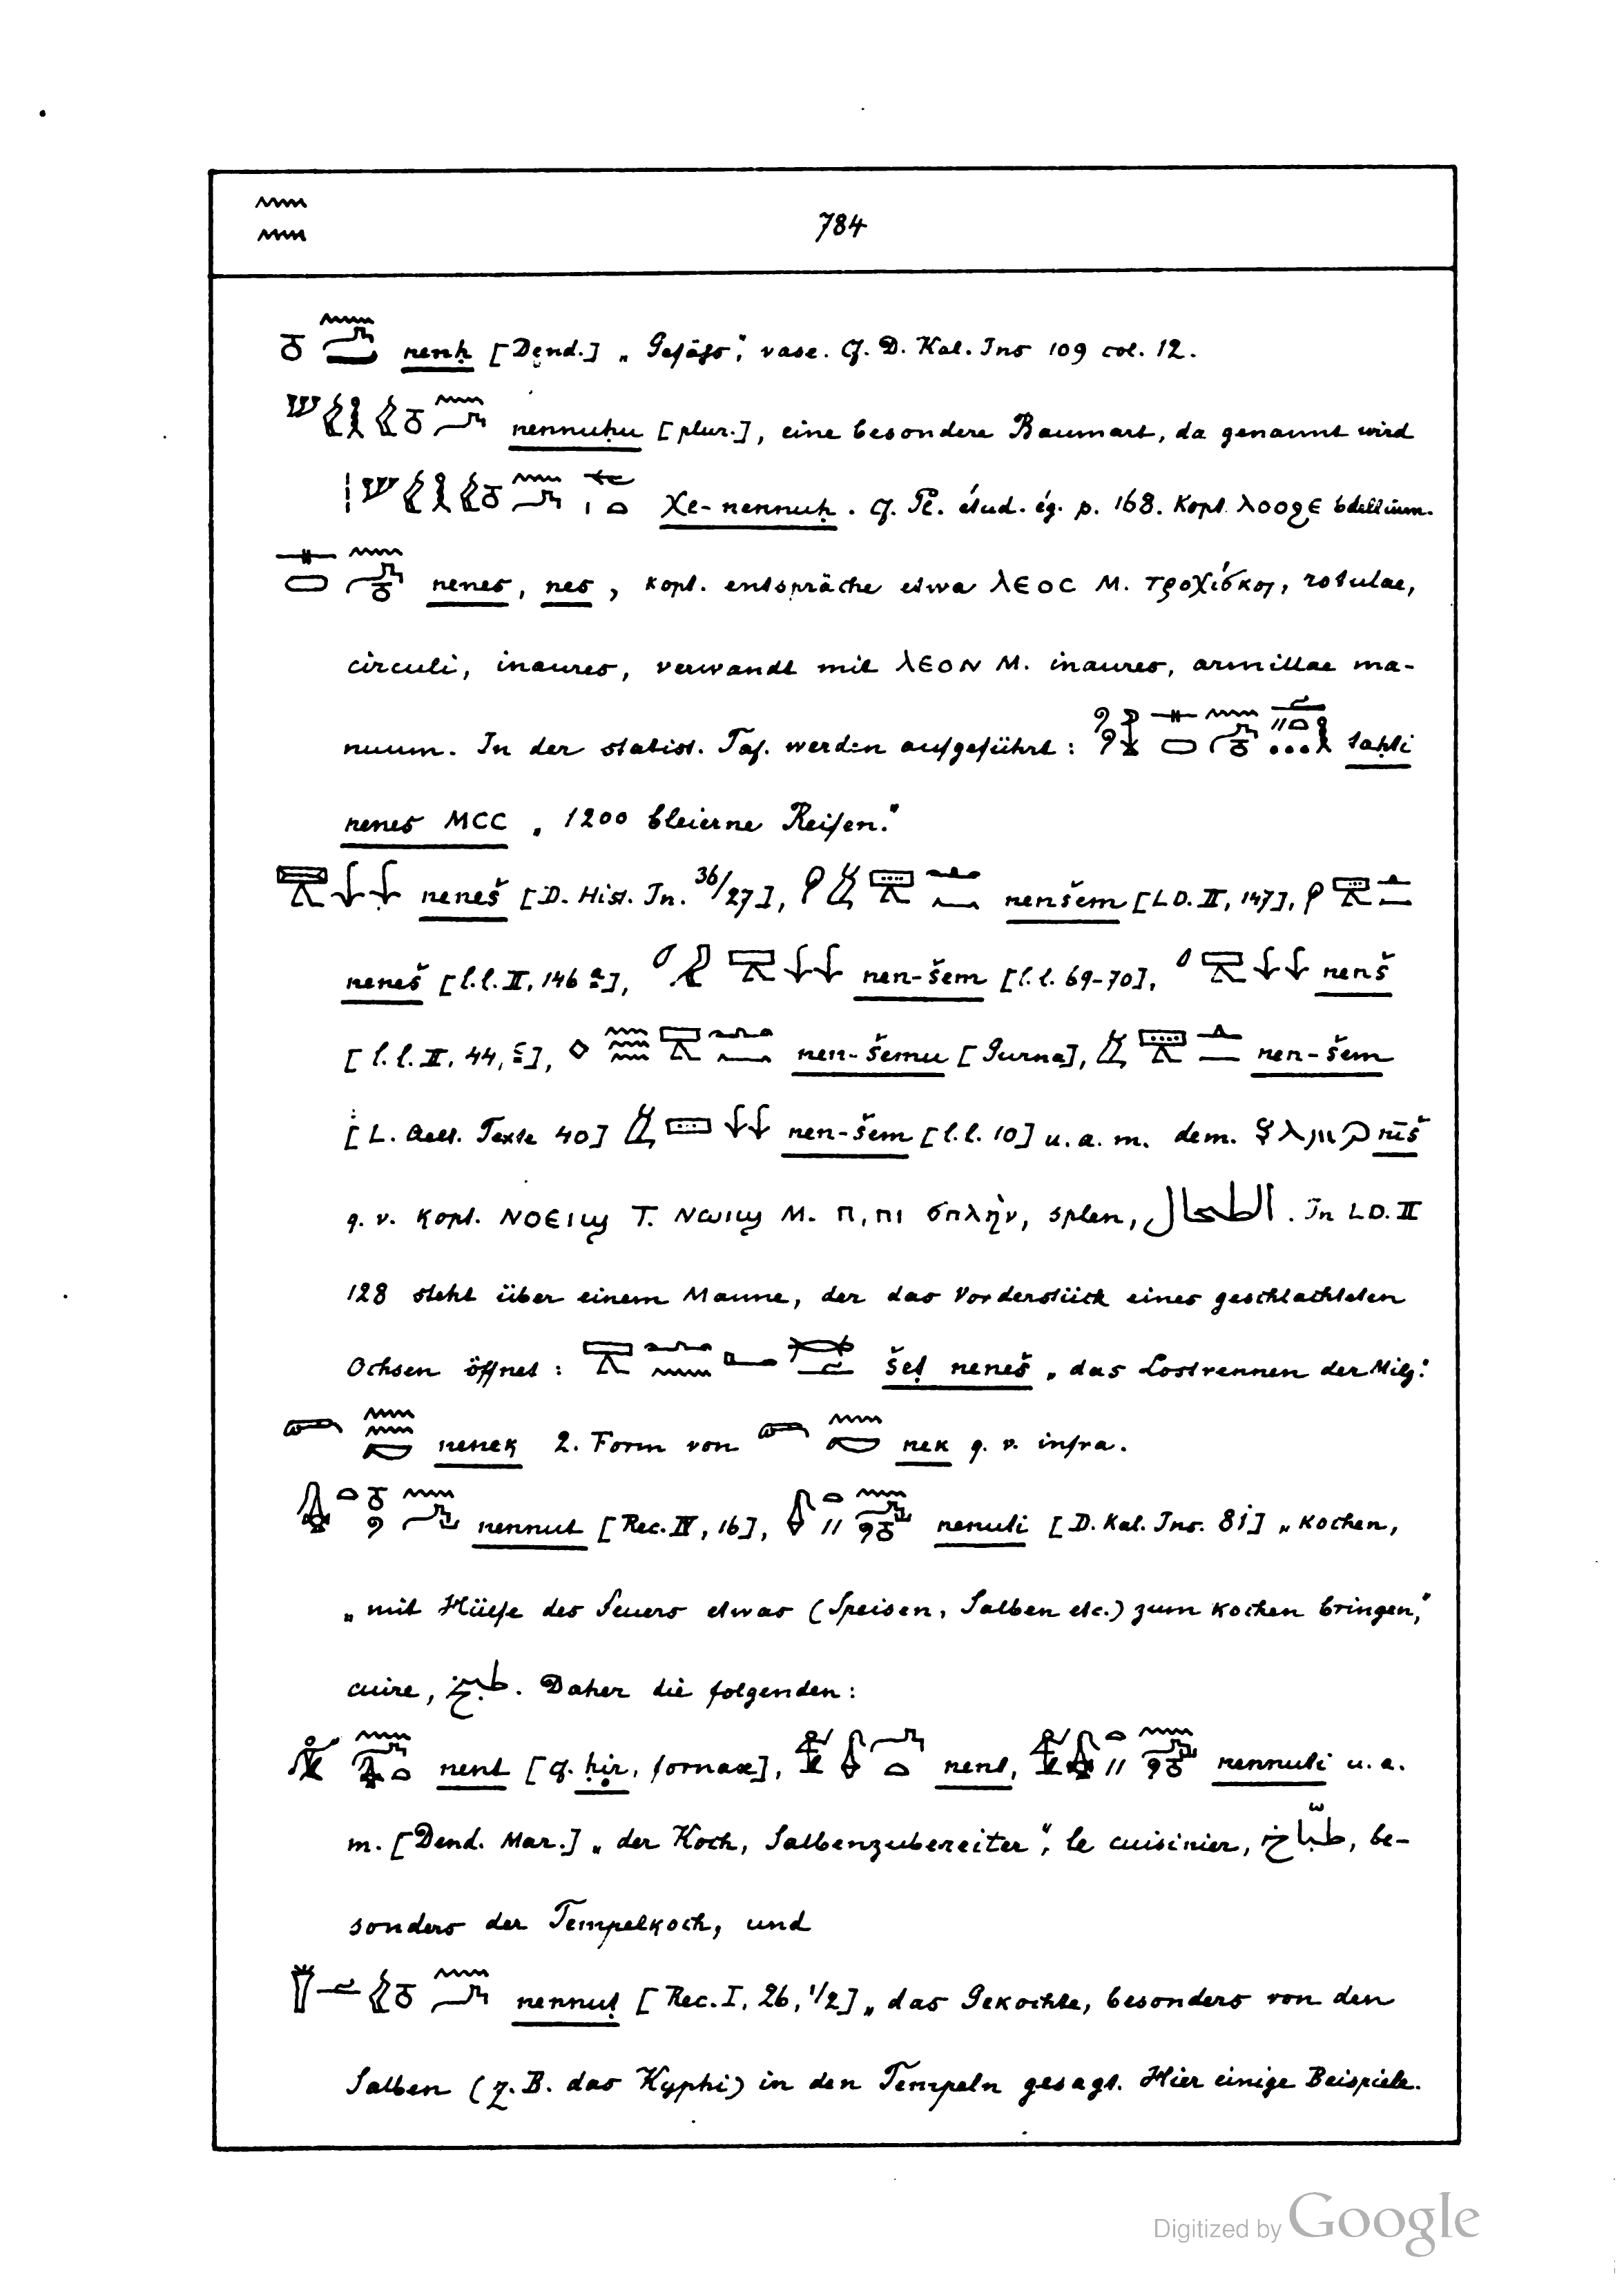 784
nenḥ [Dend.] „Gefäß“, vase. Cf. D. Kal. Ins 109 col. 12.
nennuḥu [plur.], eine besondere Baumart, da genannt wird
Xe-nennuḥ. Cf. étud. ég. p. 168. Kopt. ⲗⲟⲟϩⲉ bdellium.
nenes, nes, kopt. entspräche etwa ⲗⲉⲟⲥ M. τροχίσκοι, rotulae,
circuli, inaures, verwandt mit ⲗⲉⲟⲛ M. inaures, armillae ma-
nuum. In der statist. Taf. werden aufgeführt: taḥti
nenes MCC „1200 bleierne Reifen.“
neneš [D. Hist. In. 36/27], nenšem [LD. II, 147],
neneš [l.l. II, 146 a], nen-šem [l.l. 69-70], nenš
[l.l. II, 44, c], nen-šemu [Gurna], nen-šem
[L. Aelt. Texte 40] nen-šem [l.l. 10] u. a. m. dem. nīš
q. v. Kopt. ⲛⲟⲉⲓϣ T. ⲛⲱⲓϣ M. ⲡ, ⲡⲓ σπλὴν, splen, الطحال. In LD. II
128 steht über einem Manne, der das Vorderstück eines geschlachteten
Ochsen öffnet: šeṭ neneš „das Lostrennen der Milz“.
nenek 2. Form von nek q. v. infra.
nennut [Rec. IV, 16], nenuti [D. Kal. Ins. 81] „kochen,
„mit Hülfe des Feuers etwas (Speisen, Salben etc.) zum Kochen bringen,“
cuire, طبخ. Daher die folgenden:
nent [cf. ḥir, fornax], nent, nennuti u. a.
m. [Dend. Mar.] „der Koch, Salbenzubereiter“, le cuisinier, طبّاخ, be-
sonders der Tempelkoch, und
nennuṭ [Rec. I, 26, 1/2] „das Gekochte, besonders von den
Salben (z. B. das Kyphi) in den Tempeln gesagt. Hier einige Beispiele.
Digitized by Google